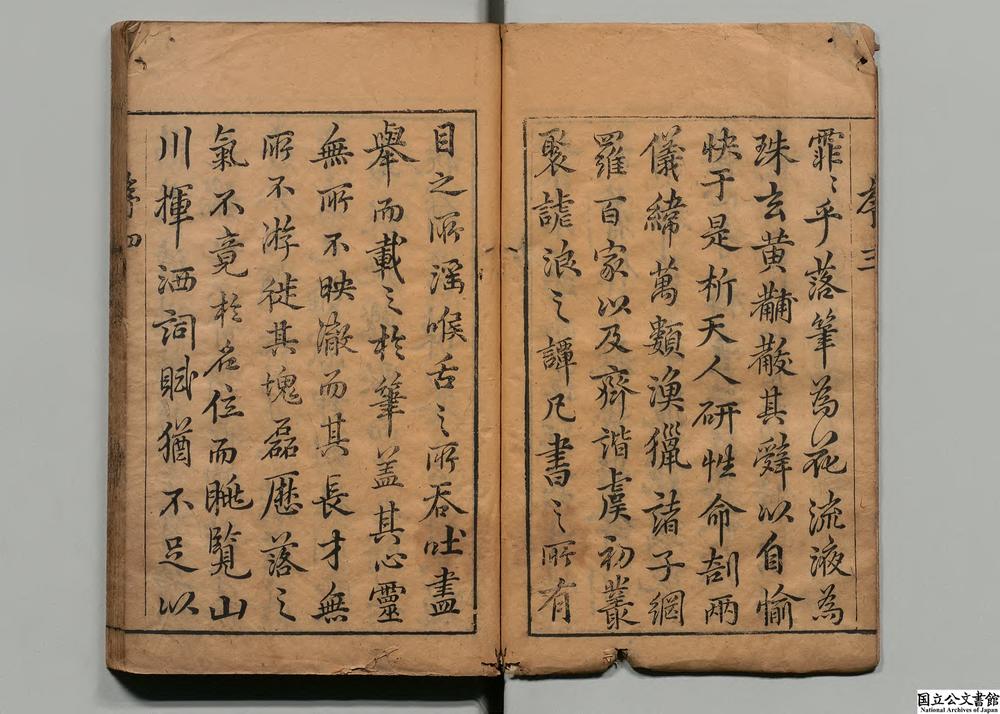 霏〻乎落筆為花流液為
珠玄黄黼黻其辭以自愉
快于是析天人研性命剖兩
儀緯萬類漁獵諸子網
羅百家以及齊諧虞初叢
聚謔浪之譚凡書之所有
序三
目之所淫喉舌之所吞吐盡
舉而載之於筆盖其心靈
無所不映澈而其長才無
所不游徙其塊磊歷落之
氣不竟於名位而眺覽山
川揮洒詞賦猶不足以
序四
国立公文書館
National Archives of Japan